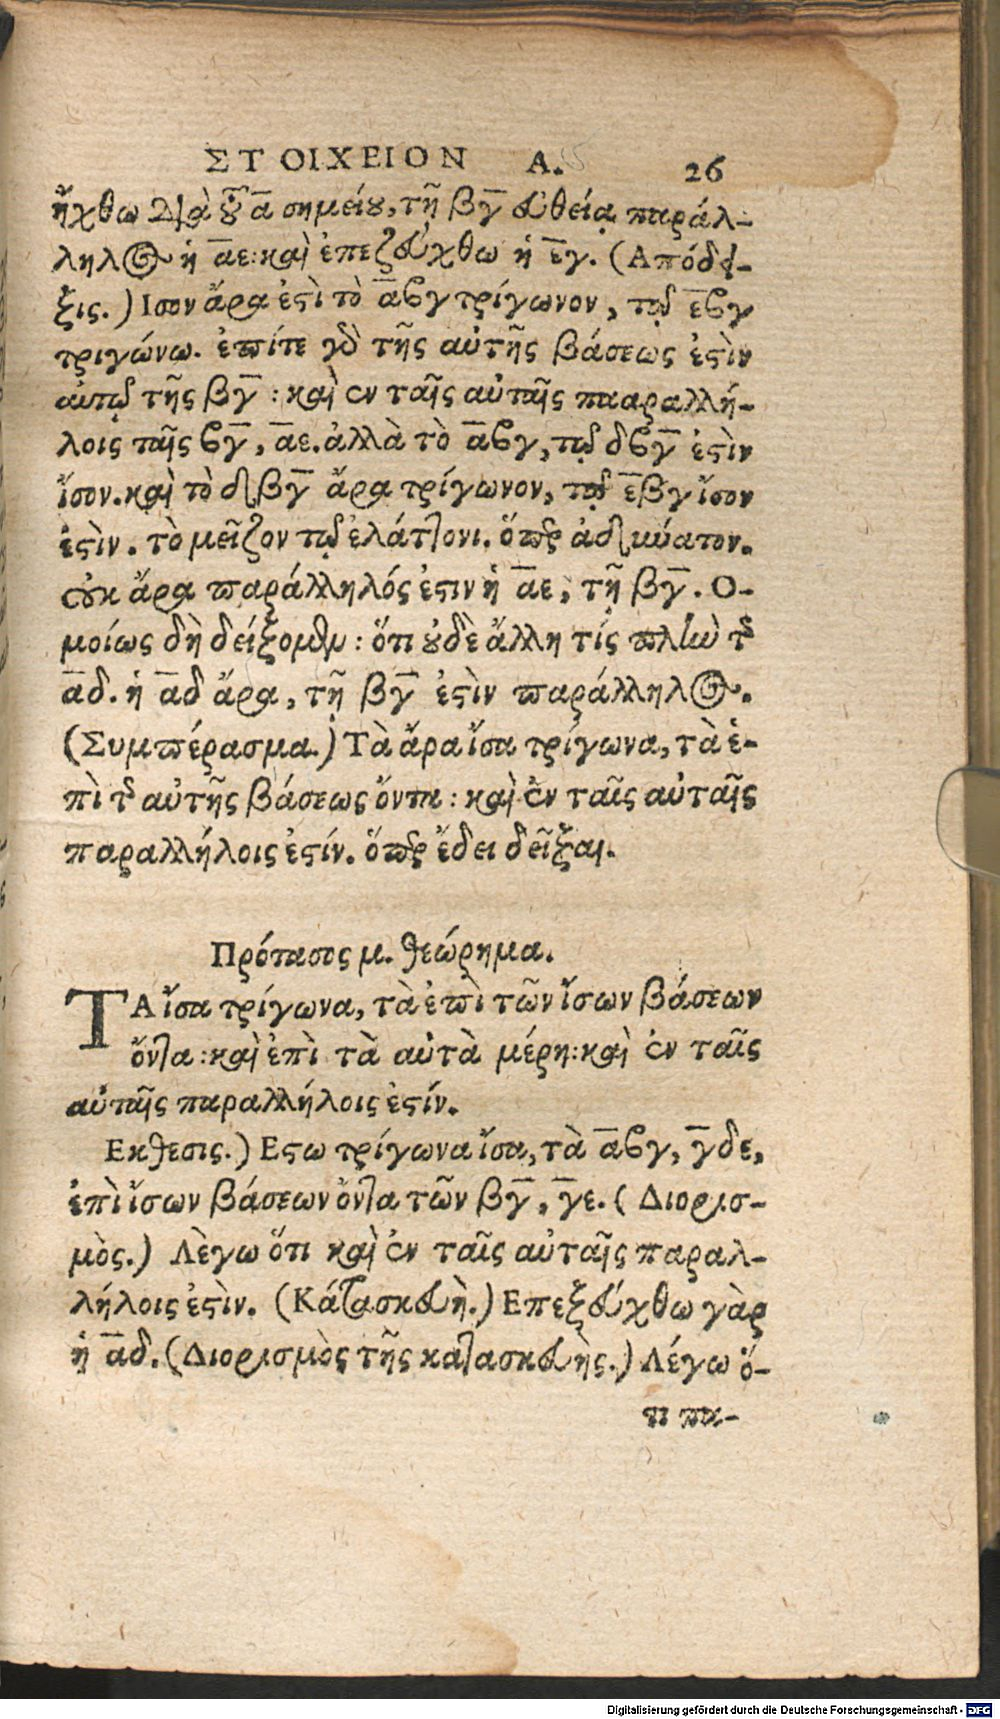 ΣΤΟΙΧΕΙΟΝ Α. 26
ἤχθω διὰ τοῦ α̅ σημείου, τῇ β̅γ̅ εὐθείᾳ παράλ-
ληλος ἡ α̅ε: καὶ ἐπεζεύχθω ἡ ε̅γ. (Απόδει-
ξις.) Ισον ἄρα ἐστὶ τὸ α̅βγ τρίγωνον, τῷ ε̅βγ
τριγώνω. ἐπίτε γὰρ τῆς αὐτῆς βάσεως ἐστὶν
αὐτῷ τῆς βγ̅: καὶ ἐν ταῖς αὐταῖς πααραλλή-
λοις ταῖς βγ̅, α̅ε. ἀλλὰ τὸ α̅βγ, τῷ δβγ̅ ἐστὶν
ἴσον. καὶ τὸ δβγ̅ ἄρα τρίγωνον, τῷ ε̅βγ ἴσον
ἐστὶν. τὸ μεῖζον τῷ ἐλάττονι. ὅπερ ἀδύνατον.
οὐκ ἄρα παράλληλός ἐστιν ἡ α̅ε, τῇ βγ̅. Ο-
μοίως δὴ δείξομεν: ὅτι οὐδὲ ἄλλη τίς πλὴν τῆς
α̅δ. ἡ α̅δ ἄρα, τῇ βγ̅ ἐστὶν παράλληλος.
(Συμπέρασμα.) Τὰ ἄρα ἴσα τρίγωνα, τὰ ἐ-
πὶ τῆς αὐτῆς βάσεως ὄντα: καὶ ἐν ταῖς αὐταῖς
παραλλήλοις ἐστίν. ὅπερ ἔδει δεῖξαι.
Πρότασις μ. θεώρημα.
ΤΑ ἴσα τρίγωνα, τὰ ἐπὶ τῶν ἴσων βάσεων
ὄντα: καὶ ἐπὶ τὰ αὐτὰ μέρη: καὶ ἐν ταῖς
αὐταῖς παραλλήλοις ἐστίν.
Εκθεσις.) Εστω τρίγωνα ἴσα, τὰ α̅βγ, γ̅δε,
ἐπὶ ἴσων βάσεων ὄντα τῶν βγ̅, γ̅ε. (Διορισ-
μὸς.) Λὲγω ὅτι καὶ ἐν ταῖς αὐταῖς παραλ-
λήλοις ἐστὶν. (Κάτασκευὴ.) Επεξεύχθω γὰρ
ἡ α̅δ. (Διορισμὸς τῆς κατασκευὴς.) Λέγω ὅ-
τι πα-
Digitalisierung gefördert durch die Deutsche Forschungsgemeinschaft - DFG